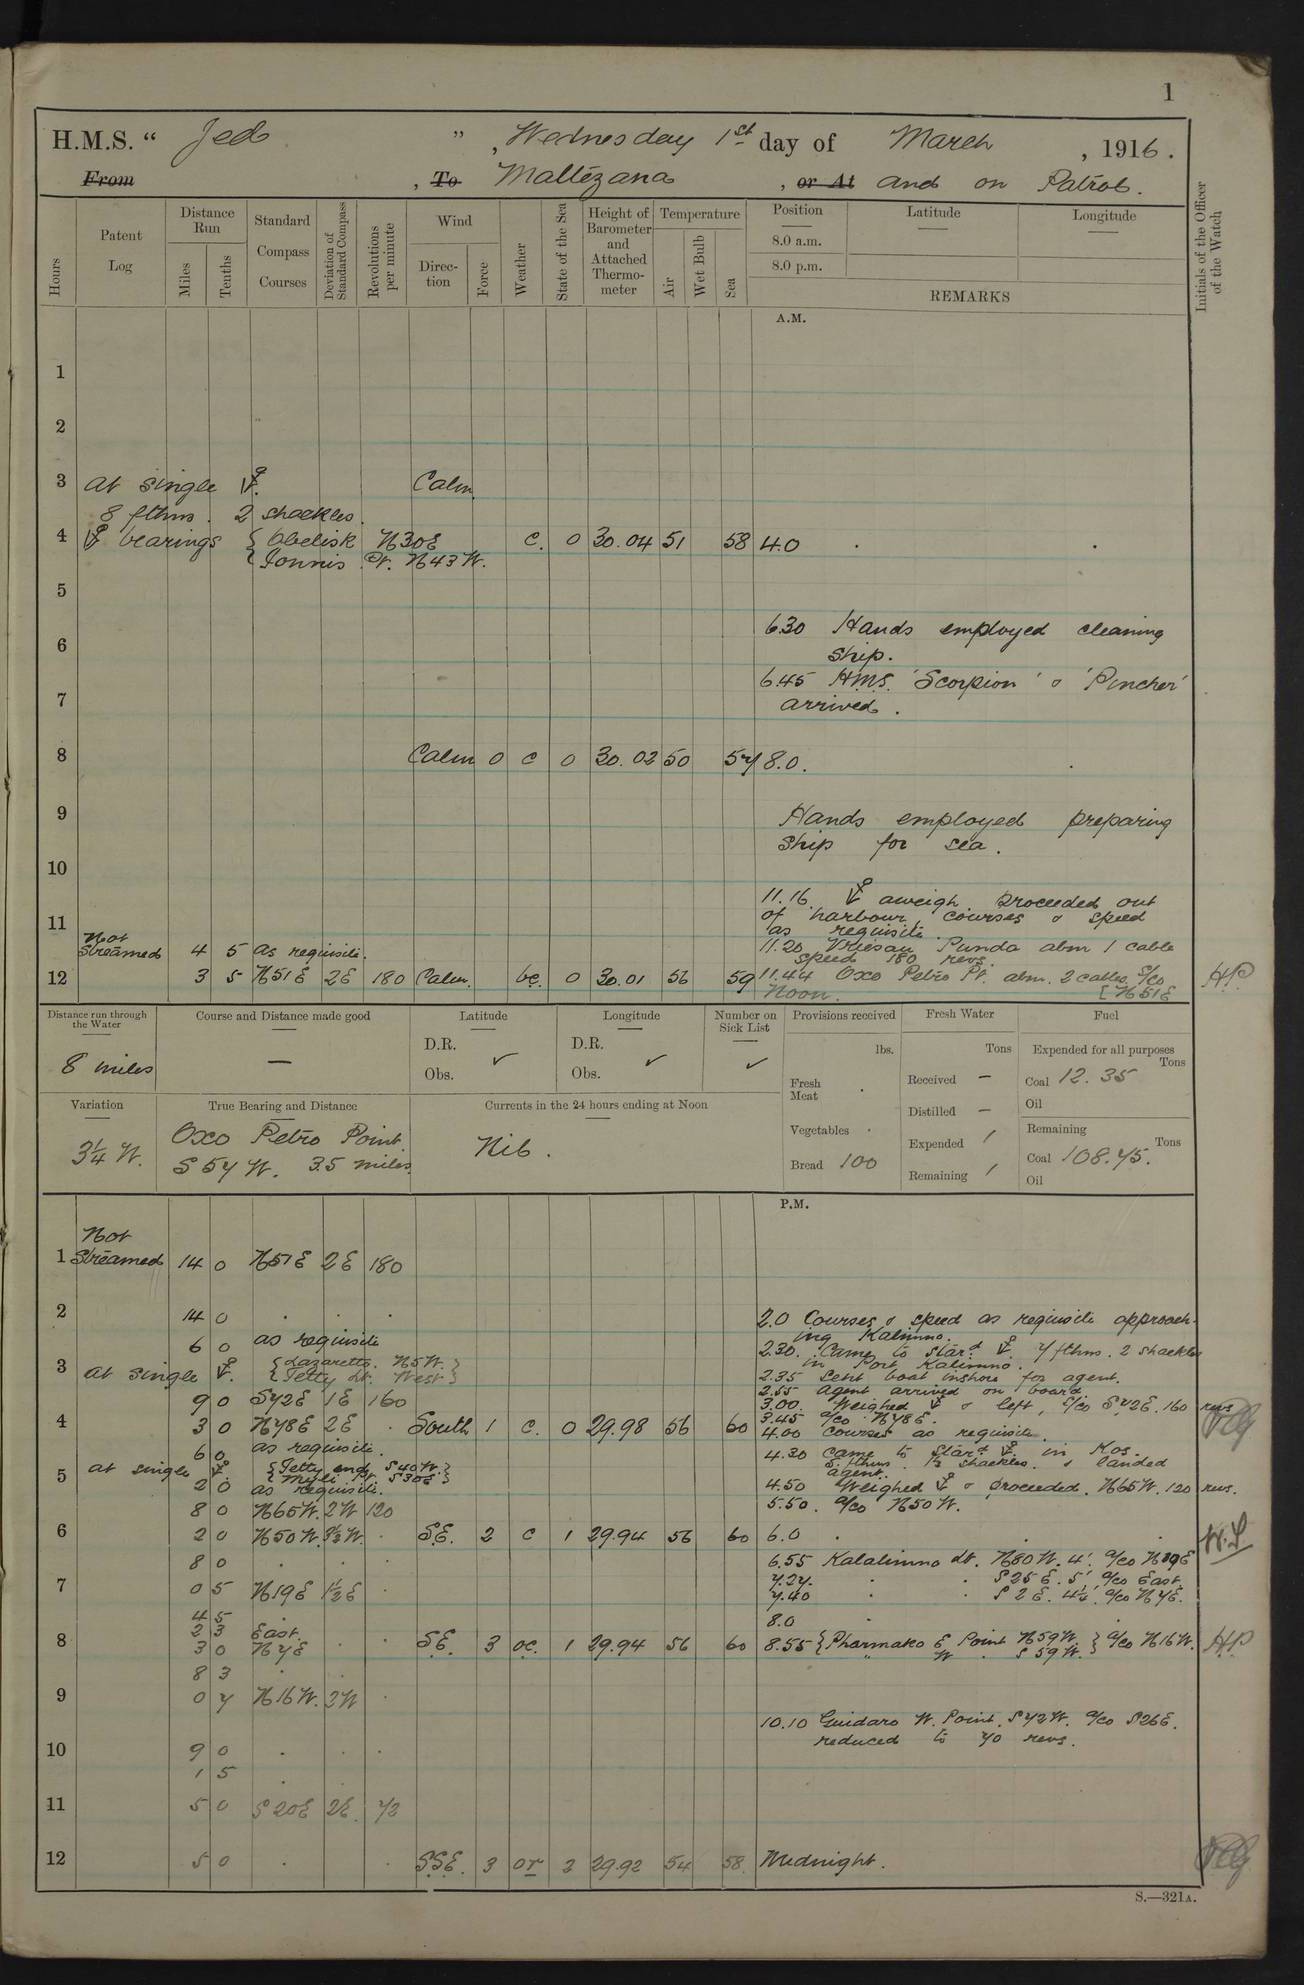 1
H.M.S. “ Jed ” , Wednesday 1st day of March , 1916 .
From , To Maltezana , or At and on Patrol .
Hours
Patent Log
Distance Run
Miles
Tenths
Standard Compass Courses
Deviation of Standard Compass
Revolutions per minute
Wind
Direction
Force
Weather
State of the Sea
Height of Barometer and Attached Thermometer
Temperature
Air
Wet Bulb
Sea
Position
8.0 a.m.
8.0 p.m.
Latitude
Longitude
REMARKS
Initials of the Officer of the Watch
A.M.
1
2
3 At single ⚓. Calm
8 fthms. 2 shackles.
4 ⚓ bearings { Obelisk N30E c. 0 30.04 51 58 4.0 . .
{ Ionnis Pt. N43W.
5
6.30 Hands employed cleaning
6 ship.
6.45 H.M.S. 'Scorpion' & 'Pincher'
7 arrived.
8 Calm 0 c 0 30.02 50 57 8.0. .
9 Hands employed preparing
ship for sea.
10
11.16 ⚓ aweigh proceeded out
11 of harbour, courses & speed
as requisite.
Not
Streamed 4 5 as requisite. 11.20 Punda abm 1 cable
speed 180 revs.
12 3 5 N51E 2E 180 Calm. bc. 0 30.01 56 59 11.44 Oxo Petro Pt. abm. 2 cables a/co
Noon. { N51E H.P.
Distance run through the Water
8 miles
Course and Distance made good
—
Latitude
D.R.
Obs. ✓
Longitude
D.R.
Obs. ✓
Number on Sick List
✓
Provisions received
lbs.
Fresh Meat .
Vegetables .
Bread 100
Fresh Water
Tons
Received —
Distilled —
Expended /
Remaining /
Fuel
Expended for all purposes
Tons
Coal 12.35
Oil
Remaining
Tons
Coal 108.75.
Oil
Variation
3¼ W.
True Bearing and Distance
Oxo Petro Point
S 57 W. 3.5 miles
Currents in the 24 hours ending at Noon
Nil.
P.M.
Not
1 Streamed 14 0 N51E 2E 180
2 14 0 . . . 2.0 Courses & speed as requisite approach-
ing Kalimno.
6 0 as requisite 2.30. Came to Stard ⚓. 7 fthms. 2 shackles
{ Lazaretto. N5W. } in Port Kalimno.
3 at single ⚓. { Jetty Lt. West } 2.35 Sent boat inshore for agent.
2.55 Agent arrived on board
9 0 S72E 1E 160 3.00. Weighed ⚓ & left, c/co S72E. 160 revs
3.45 a/co N78E.
4 3 0 N78E 2E . South 1 c. 0 29.98 56 60 4.00 Courses as requisite.
6 0 as requisite. 4.30 Came to Stard ⚓ in Kos.
5 at single ⚓. { Jetty end S40W. } 5 fthms. 1½ shackles. & landed
{ Myli Pt. S30E } agent.
2 0 as requisite. 4.50 Weighed ⚓ & proceeded. N65W. 120 revs.
8 0 N65W. 2W 120 5.50. a/co N50W.
6 2 0 N50W. W. . S.E. 2 c 1 29.94 56 60 6.0 . . W.L
8 0 . . . 6.55 Kalalimno Lt. N80W. 4'. a/co N19E
7 0 5 N19E 1½E . 7.27. . . S25E. 5'. a/co East.
7.40 . . S2E. 4¼'. a/co N7E.
4 5 . 8.0 . .
2 3 East.
8 3 0 N7E . . S.E. 3 oc. 1 29.94 56 60 8.55 { Pharmako E Point N59W. } a/co N16W. H.P
{ " W . S59W. }
8 3 . .
9 0 7 N16W. 2W .
10.10 Guidaro W. Point. S72W. a/co S26E.
10 9 0 . . . reduced to 70 revs.
1 5 . .
11 5 0 S20E 2E. 72
12 5 0 . . S.S.E. 3 or 2 29.92 54 58 Midnight.
S.—321A.